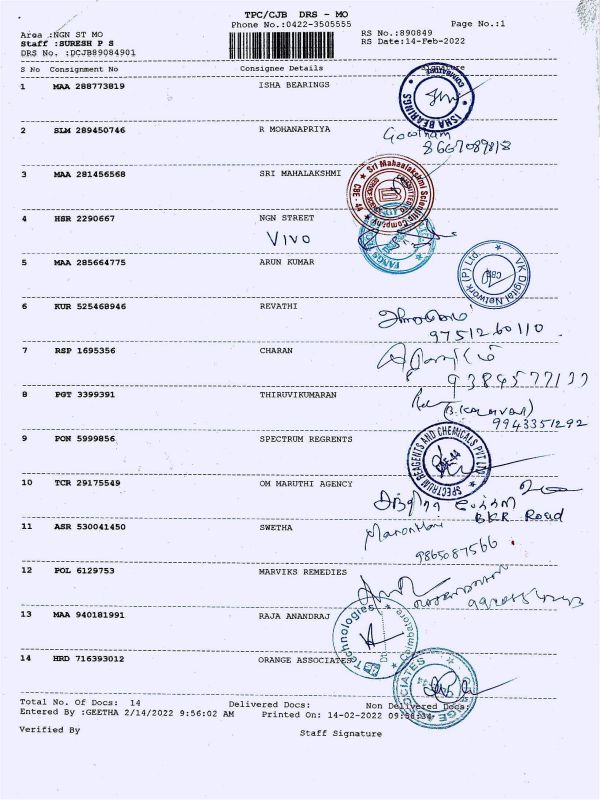 TPC/CJB DRS - MO
Phone No.:0422-3505555
Page No.:1
Area :NGN ST MO
Staff :SURESH P S
DRS No. :DCJB89084901
RS No.:890849
RS Date:14-Feb-2022
S No Consignment No Consignee Details Signature
1 MAA 288773819 ISHA BEARINGS
COIMBATORE ISHA BEARINGS
2 SLM 289450746 R MOHANAPRIYA
Gowtham
8667089818
3 MAA 281456568 SRI MAHALAKSHMI
Sri Mahaalakshmi Scientific Company CBE - 44
4 HSR 2290667 NGN STREET
VIVO
5 MAA 285664775 ARUN KUMAR
VK Digital Network (P) Ltd.
6 KUR 525468946 REVATHI
9751260110
7 RSP 1695356 CHARAN
8 PGT 3399391 THIRUVIKUMARAN
9943351292
9 PON 5999856 SPECTRUM REGRENTS
SPECTRUM REAGENTS AND CHEMICALS PVT LTD
10 TCR 29175549 OM MARUTHI AGENCY
BKR Road
11 ASR 530041450 SWETHA
9865087566
12 POL 6129753 MARVIKS REMEDIES
13 MAA 940181991 RAJA ANANDRAJ
Technologies Coimbatore
14 HRD 716393012 ORANGE ASSOCIATES
Total No. Of Docs: 14 Delivered Docs: Non Delivered Docs:
Entered By :GEETHA 2/14/2022 9:56:02 AM Printed On: 14-02-2022
Verified By
Staff Signature